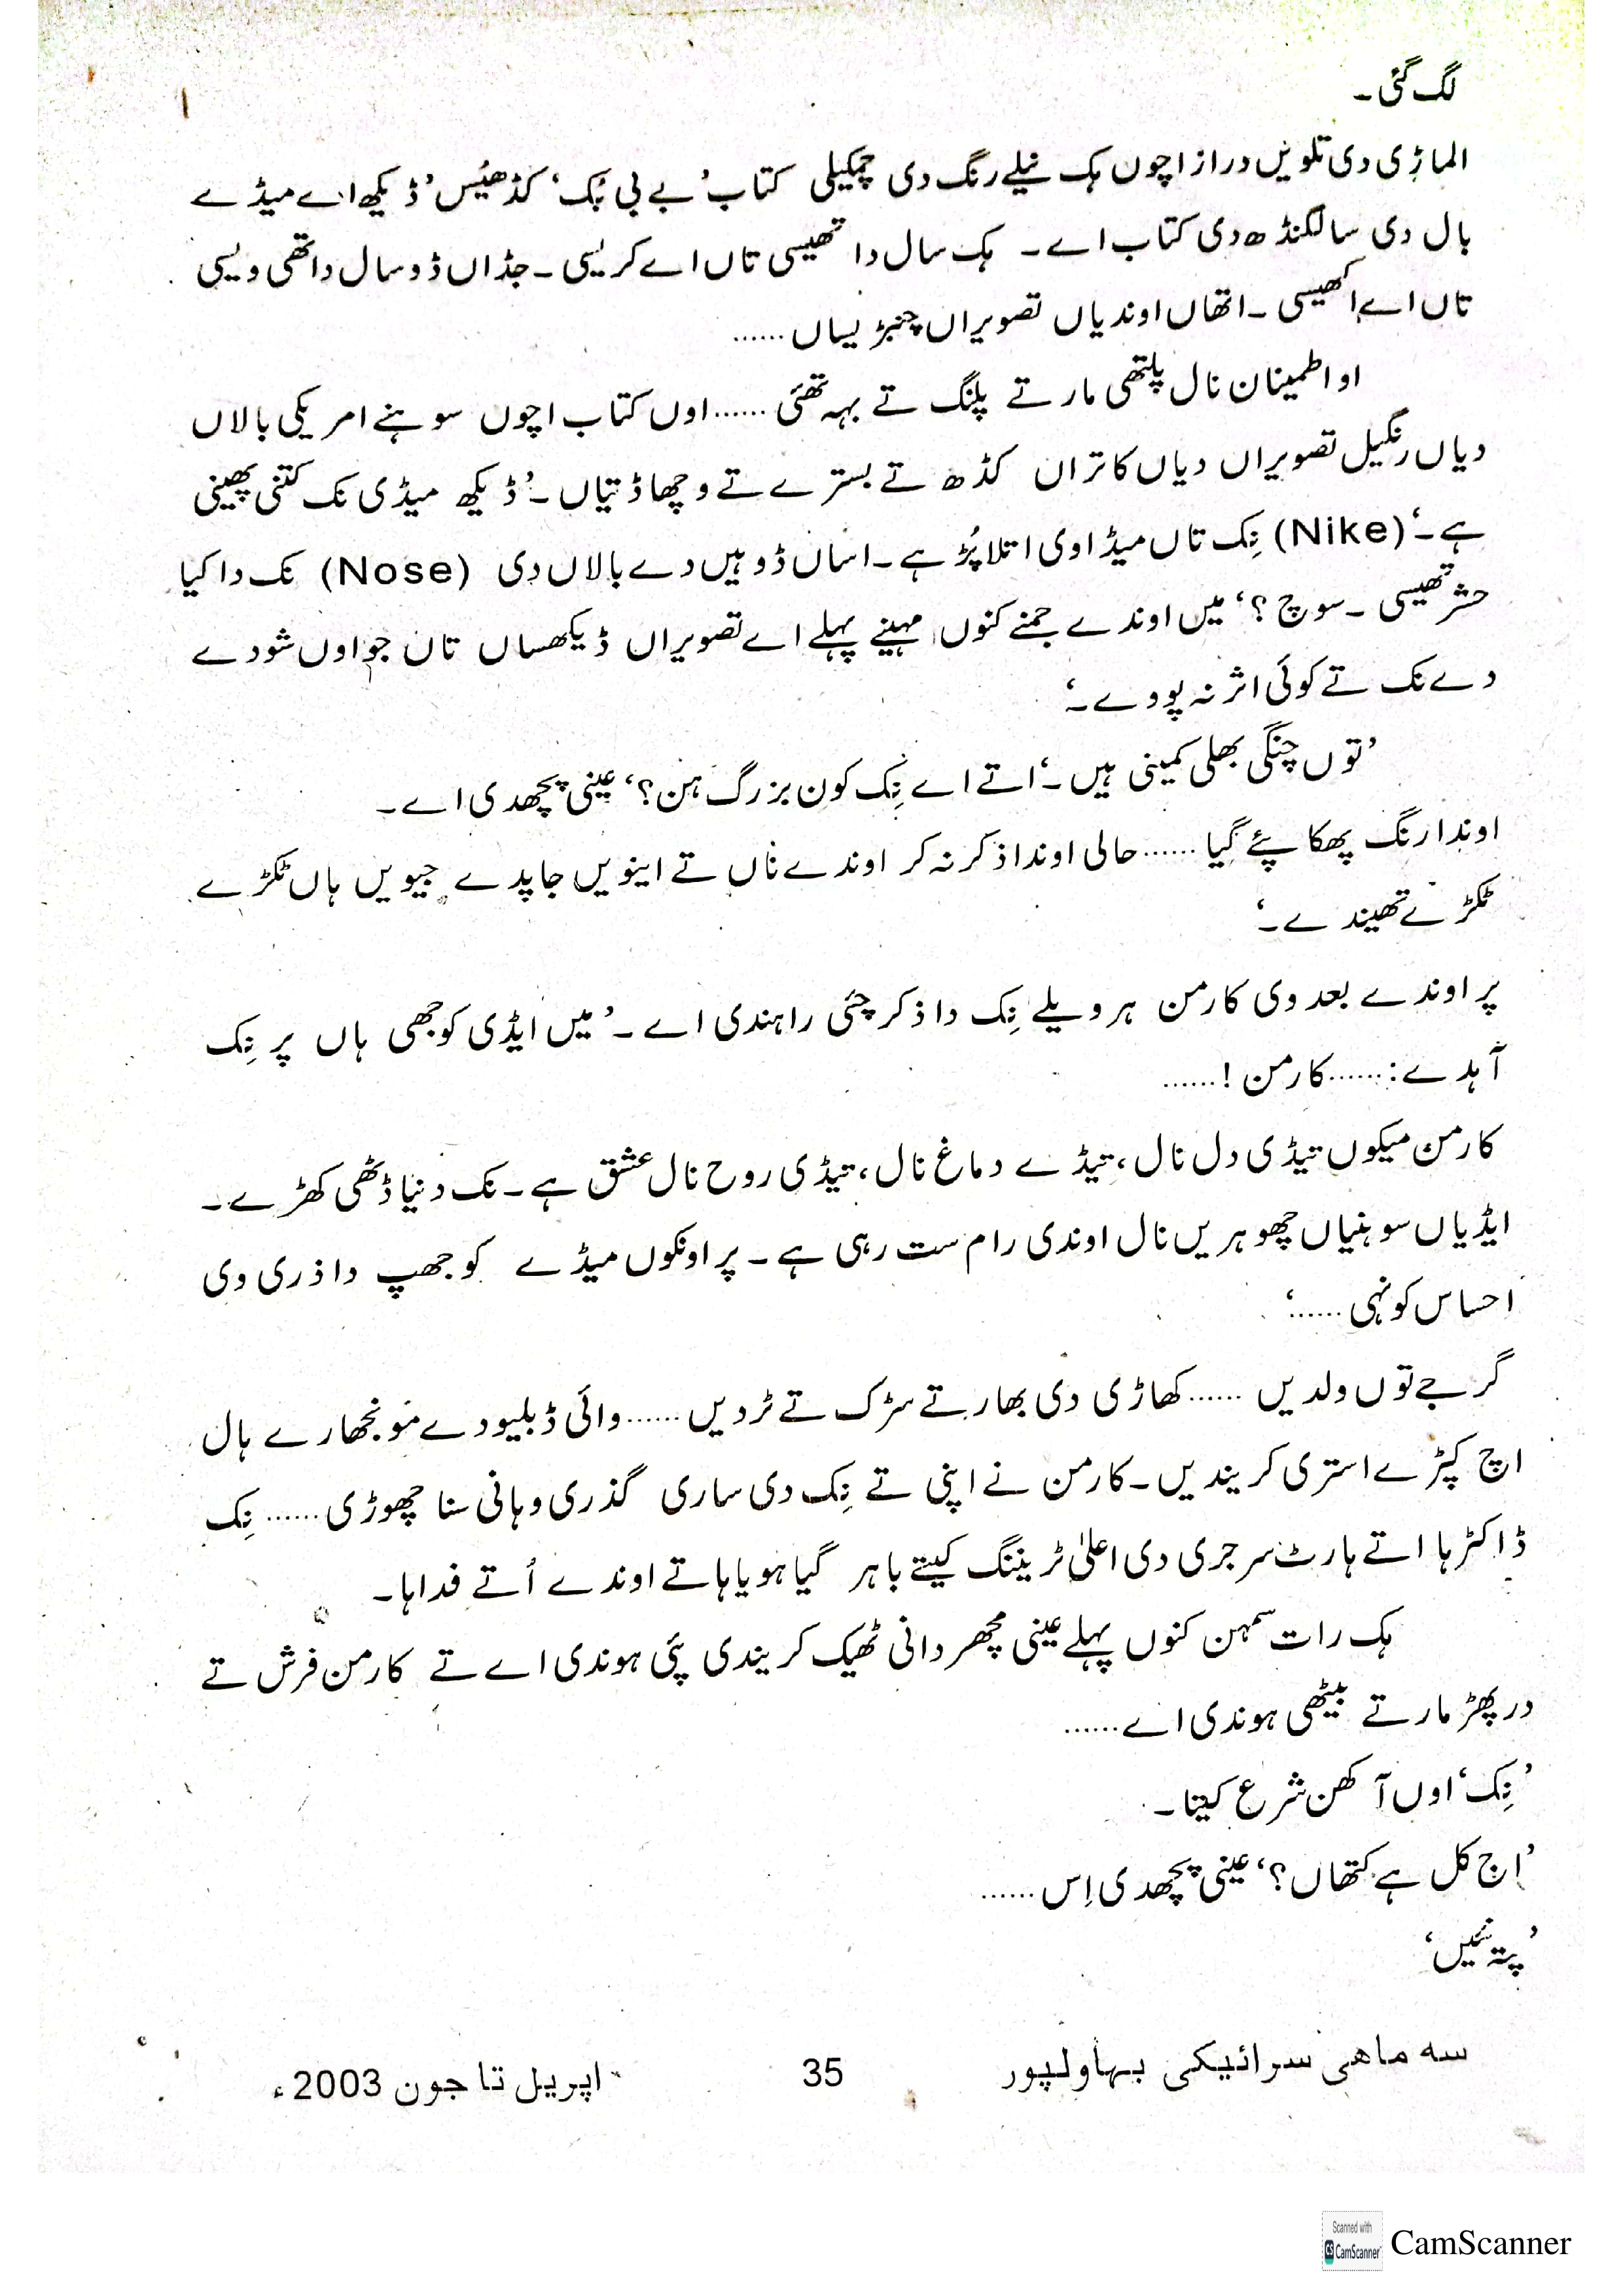 لگ گئی۔
الماڑی دی تلویں دراز اچوں ہک نیلے رنگ دی چمکیلی کتاب ’بے بی بُک‘ کڈھیُس ’ڈیکھ اے میڈے
بال دی سالگنڈھ دی کتاب اے۔ ہک سال دا تھیسی تاں اے کریسی۔ جڈاں ڈو سال دا تھی ویسی
تاں اے اکھیسی۔ اتھاں اوندیاں تصویراں چنبڑیساں ......
او اطمینان نال پلتھی مار تے پلنگ تے بہہ تھئی ...... اوں کتاب اچوں سوہنے امریکی بالاں
دیاں رنگیل تصویراں دیاں کاتراں کڈھ تے بسترے تے وچھا ڈتیاں۔ ’ڈیکھ میڈی نک کتنی پھینی
ہے۔‘ (Nike) نِک تاں میڈا وی اتلا پُڑ ہے۔ اساں ڈوہیں دے بالاں دی (Nose) نک دا کیا
حشر تھیسی۔ سوچ ؟‘ میں اوندے جمنے کنوں مہینے پہلے اے تصویراں ڈیکھساں تاں جو اوں شودے
دے نک تے کوئی اثر نہ پووے۔‘
’توں چنگی بھلی کمینی ہیں۔‘ اتے اے نِک کون بزرگ ہن؟‘ عینی پچھدی اے۔
اوندا رنگ پھکا پئے گیا ...... حالی اوندا ذکر نہ کر اوندے ناں تے اینویں جاپدے جیویں ہاں ٹکڑے
ٹکڑے تھیندے۔‘
پر اوندے بعد وی کارمن ہر ویلے نِک دا ذکر چئی راہندی اے۔ ’میں ایڈی کوجھی ہاں پر نِک
آہدے: ...... کارمن ! ......
کارمن میکوں تیڈی دل نال، تیڈے دماغ نال، تیڈی روح نال عشق ہے۔ نک دنیا ڈٹھی کھڑے۔
ایڈیاں سوہنیاں چھوہریں نال اوندی رام ست رہی ہے۔ پر اونکوں میڈے کوجھپ دا ذری وی
احساس کونہی ......‘
گرجے توں ولدیں ...... کھاڑی دی بھار تے سڑک تے ٹردیں ...... وائی ڈبلیو دے مونجھارے ہال
اچ کپڑے استری کریندیں۔ کارمن نے اپنی تے نِک دی ساری گذری وہانی سنا چھوڑی ...... نِک
ڈاکٹر ہا اتے ہارٹ سرجری دی اعلیٰ ٹریننگ کیتے باہر گیا ہویا ہا تے اوندے اُتے فدا ہا۔
ہک رات سمہن کنوں پہلے عینی مچھر دانی ٹھیک کریندی پئی ہوندی اے تے کارمن فرش تے
درپھڑ مار تے بیٹھی ہوندی اے ......
’نِک‘ اوں آکھن شرع کیتا۔
’اج کل ہے کتھاں؟‘ عینی پچھدی اِس ......
’پتہ نئیں‘
سه ماهی سرائیکی بہاولپور 35 اپریل تا جون 2003ء
Scanned with
CS CamScanner
CamScanner